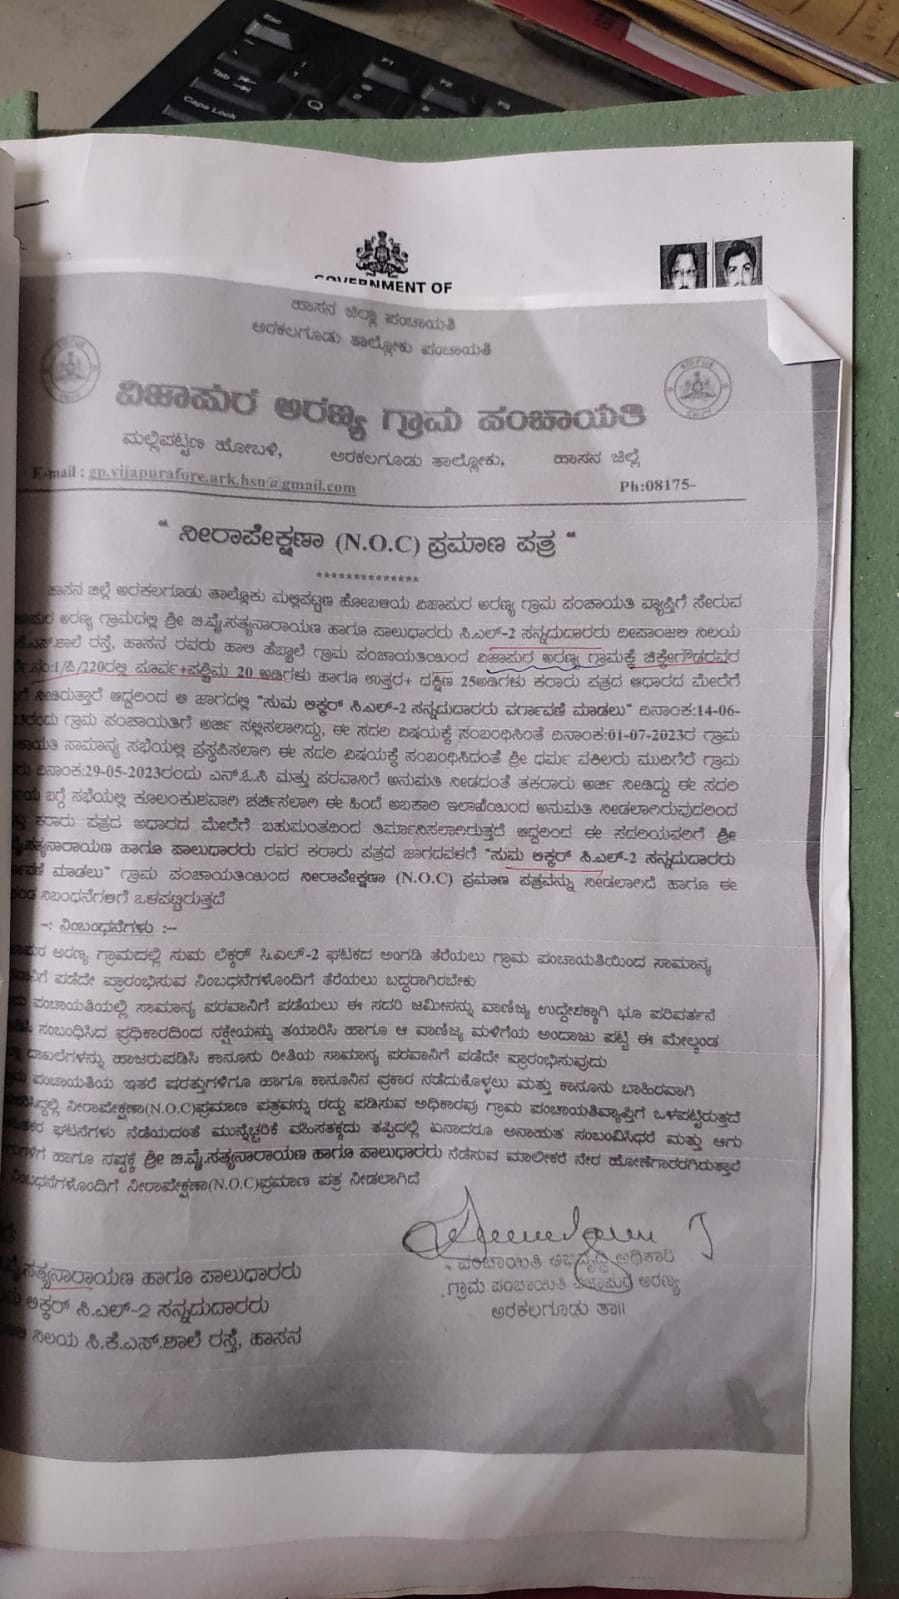 Esc
F1
F2
F3
Tab
Q
Caps Lock
GOVERNMENT OF
ಹಾಸನ ಜಿಲ್ಲಾ ಪಂಚಾಯತಿ
ಅರಕಲಗೂಡು ತಾಲ್ಲೋಕು ಪಂಚಾಯತಿ
ವಿಜಾಪುರ ಅರಣ್ಯ ಗ್ರಾಮ ಪಂಚಾಯತಿ
ಮಲ್ಲಿಪಟ್ಟಣ ಹೋಬಳಿ, ಅರಕಲಗೂಡು ತಾಲ್ಲೋಕು, ಹಾಸನ ಜಿಲ್ಲೆ
E-mail : gp.vijapurafore.ark.hsn@gmail.com Ph:08175-
“ ನೀರಾಪೇಕ್ಷಣಾ (N.O.C) ಪ್ರಮಾಣ ಪತ್ರ “
**************
ಹಾಸನ ಜಿಲ್ಲೆ ಅರಕಲಗೂಡು ತಾಲ್ಲೊಕು ಮಲ್ಲಿಪಟ್ಟಣ ಹೋಬಳಿಯ ವಿಜಾಪುರ ಅರಣ್ಯ ಗ್ರಾಮ ಪಂಚಾಯತಿ ವ್ಯಾಪ್ತಿಗೆ ಸೇರುವ
ಅರಣ್ಯ ಗ್ರಾಮದಲ್ಲಿ ಶ್ರೀ ಬಿ.ವೈ.ಸತ್ಯನಾರಾಯಣ ಹಾಗೂ ಪಾಲುಧಾರರು ಸಿ.ಎಲ್-2 ಸನ್ನದುದಾರರು ದೀಪಾಂಜಲಿ ನಿಲಯ
ರಸ್ತೆ, ಹಾಸನ ರವರು ಹಾಲಿ ಹೆಬ್ಬಾಲೆ ಗ್ರಾಮ ಪಂಚಾಯತಿಯಿಂದ ವಿಜಾಪುರ ಅರಣ್ಯ ಗ್ರಾಮಕ್ಕೆ ಚಿಕ್ಕೇಗೌಡರವರ
ಪೂರ್ವ+ಪಶ್ಚಿಮ 20 ಅಡಿಗಳು ಹಾಗೂ ಉತ್ತರ+ ದಕ್ಷಿಣ 25ಅಡಿಗಳು ಕರಾರು ಪತ್ರದ ಆಧಾರದ ಮೇರೆಗೆ
ನೀಡಿರುತ್ತಾರೆ ಆದ್ದರಿಂದ ಆ ಜಾಗದಲ್ಲಿ “ಸುಮ ಲಿಕ್ಕರ್ ಸಿ.ಎಲ್-2 ಸನ್ನದುದಾರರು ವರ್ಗಾವಣೆ ಮಾಡಲು” ದಿನಾಂಕ:14-06-
ಗ್ರಾಮ ಪಂಚಾಯತಿಗೆ ಅರ್ಜಿ ಸಲ್ಲಿಸಲಾಗಿದ್ದು, ಈ ಸದರಿ ವಿಷಯಕ್ಕೆ ಸಂಬಂಧಿಸಿಂತೆ ದಿನಾಂಕ:01-07-2023ರ ಗ್ರಾಮ
ಸಾಮಾನ್ಯ ಸಭೆಯಲ್ಲಿ ಪ್ರಸ್ಥಪಿಸಲಾಗಿ ಈ ಸದರಿ ವಿಷಯಕ್ಕೆ ಸಂಬಂಧಿಸಿದಂತೆ ಶ್ರೀ ಧರ್ಮ ವಕೀಲರು ಮುದಿಗೆರೆ ಗ್ರಾಮ
ದಿನಾಂಕ:29-05-2023ರಂದು ಎನ್.ಓ.ಸಿ ಮತ್ತು ಪರವಾನಿಗೆ ಅನುಮತಿ ನೀಡದಂತೆ ತಕರಾರು ಅರ್ಜಿ ನೀಡಿದ್ದು ಈ ಸದರಿ
ಬಗ್ಗೆ ಸಭೆಯಲ್ಲಿ ಕೂಲಂಕುಶವಾಗಿ ಚರ್ಚಿಸಲಾಗಿ ಈ ಹಿಂದೆ ಅಬಕಾರಿ ಇಲಾಖೆಯಿಂದ ಅನುಮತಿ ನೀಡಲಾಗಿರುವುದರಿಂದ
ಕರಾರು ಪತ್ರದ ಆಧಾರದ ಮೇರೆಗೆ ಬಹುಮತದಿಂದ ತಿರ್ಮಾನಿಸಲಾಗಿರುತ್ತದೆ ಆದ್ದರಿಂದ ಈ ಸದರಿಯವರಿಗೆ ಶ್ರೀ
ಹಾಗೂ ಪಾಲುಧಾರರು ರವರ ಕರಾರು ಪತ್ರದ ಜಾಗದವಳಗೆ “ಸುಮ ಲಿಕ್ಕರ್ ಸಿ.ಎಲ್-2 ಸನ್ನದುದಾರರು
ಮಾಡಲು” ಗ್ರಾಮ ಪಂಚಾಯತಿಯಿಂದ ನೀರಾಪೇಕ್ಷಣಾ (N.O.C) ಪ್ರಮಾಣ ಪತ್ರವನ್ನು ನೀಡಲಾಗಿದೆ ಹಾಗೂ ಈ
ನಿಬಂಧನೆಗಳಿಗೆ ಒಳಪಟ್ಟಿರುತ್ತದೆ
-: ನಿಂಬಂಧನೆಗಳು :-
ಅರಣ್ಯ ಗ್ರಾಮದಲ್ಲಿ ಸುಮ ಲಿಕ್ಕರ್ ಸಿ.ಎಲ್-2 ಘಟಕದ ಅಂಗಡಿ ತೆರೆಯಲು ಗ್ರಾಮ ಪಂಚಾಯತಿಯಿಂದ ಸಾಮಾನ್ಯ
ಪಡೆದೇ ಪ್ರಾರಂಭಿಸುವ ನಿಂಬಂಧನೆಗಳೊಂದಿಗೆ ತೆರೆಯಲು ಬದ್ದರಾಗಿರಬೇಕು
ಪಂಚಾಯತಿಯಲ್ಲಿ ಸಾಮಾನ್ಯ ಪರವಾನಿಗೆ ಪಡೆಯಲು ಈ ಸದರಿ ಜಮೀನನ್ನು ವಾಣಿಜ್ಯ ಉದ್ದೇಶಕ್ಕಾಗಿ ಭೂ ಪರಿವರ್ತನೆ
ಸಂಬಂಧಿಸಿದ ಪ್ರಧಿಕಾರದಿಂದ ನಕ್ಷೆಯನ್ನು ತಯಾರಿಸಿ ಹಾಗೂ ಆ ವಾಣಿಜ್ಯ ಮಳಿಗೆಯ ಅಂದಾಜು ಪಟ್ಟಿ ಈ ಮೇಲ್ಕಂಡ
ದಾಖಲೆಗಳನ್ನು ಹಾಜರುಪಡಿಸಿ ಕಾನೂನು ರೀತಿಯ ಸಾಮಾನ್ಯ ಪರವಾನಿಗೆ ಪಡೆದೇ ಪ್ರಾರಂಭಿಸುವುದು
ಪಂಚಾಯತಿಯ ಇತರೆ ಷರತ್ತುಗಳಿಗೂ ಹಾಗೂ ಕಾನೂನಿನ ಪ್ರಕಾರ ನಡೆದುಕೊಳ್ಳಲು ಮತ್ತು ಕಾನೂನು ಬಾಹಿರವಾಗಿ
ನೀರಾಪೇಕ್ಷಣಾ(N.O.C)ಪ್ರಮಾಣ ಪತ್ರವನ್ನು ರದ್ದು ಪಡಿಸುವ ಅಧಿಕಾರವು ಗ್ರಾಮ ಪಂಚಾಯತಿವ್ಯಾಪ್ತಿಗೆ ಒಳಪಟ್ಟಿರುತ್ತದೆ
ಘಟನೆಗಳು ನೆಡೆಯದಂತೆ ಮುನ್ನೆಚ್ಚರಿಕೆ ವಹಿಸತಕ್ಕದು ತಪ್ಪಿದಲ್ಲಿ ಏನಾದರೂ ಅನಾಹುತ ಸಂಬಂವಿಸಿಧರೆ ಮತ್ತು ಆಗು
ಹಾಗೂ ನಷ್ಟಕ್ಕೆ ಶ್ರೀ ಬಿ.ವೈ.ಸತ್ಯನಾರಾಯಣ ಹಾಗೂ ಪಾಲುಧಾರರು ನೆಡೆಸುವ ಮಾಲೀಕರೆ ನೇರ ಹೋಣೆಗಾರರಗಿರುತ್ತಾರೆ
ನೀರಾಪೇಕ್ಷಣಾ(N.O.C)ಪ್ರಮಾಣ ಪತ್ರ ನೀಡಲಾಗಿದೆ
ಪಂಚಾಯಿತಿ ಅಭಿವೃದ್ಧಿ ಅಧಿಕಾರಿ
ಗ್ರಾಮ ಪಂಚಾಯಿತಿ ವಿಜಾಪುರ ಅರಣ್ಯ
ಅರಕಲಗೂಡು ತಾ॥
ಸತ್ಯನಾರಾಯಣ ಹಾಗೂ ಪಾಲುಧಾರರು
ಲಿಕ್ಕರ್ ಸಿ.ಎಲ್-2 ಸನ್ನದುದಾರರು
ನಿಲಯ ಸಿ.ಕೆ.ಎಸ್.ಶಾಲೆ ರಸ್ತೆ, ಹಾಸನ